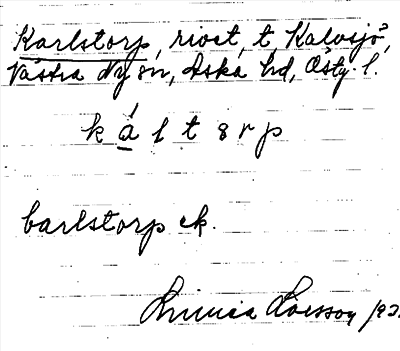 Karlstorp, rivet, t. Kalvsjö,
Västra Ny sn, Aska hd, Östg. l.
k á l t ɘ r p
Carlstorp ek.
Linnéa Larsson /93.